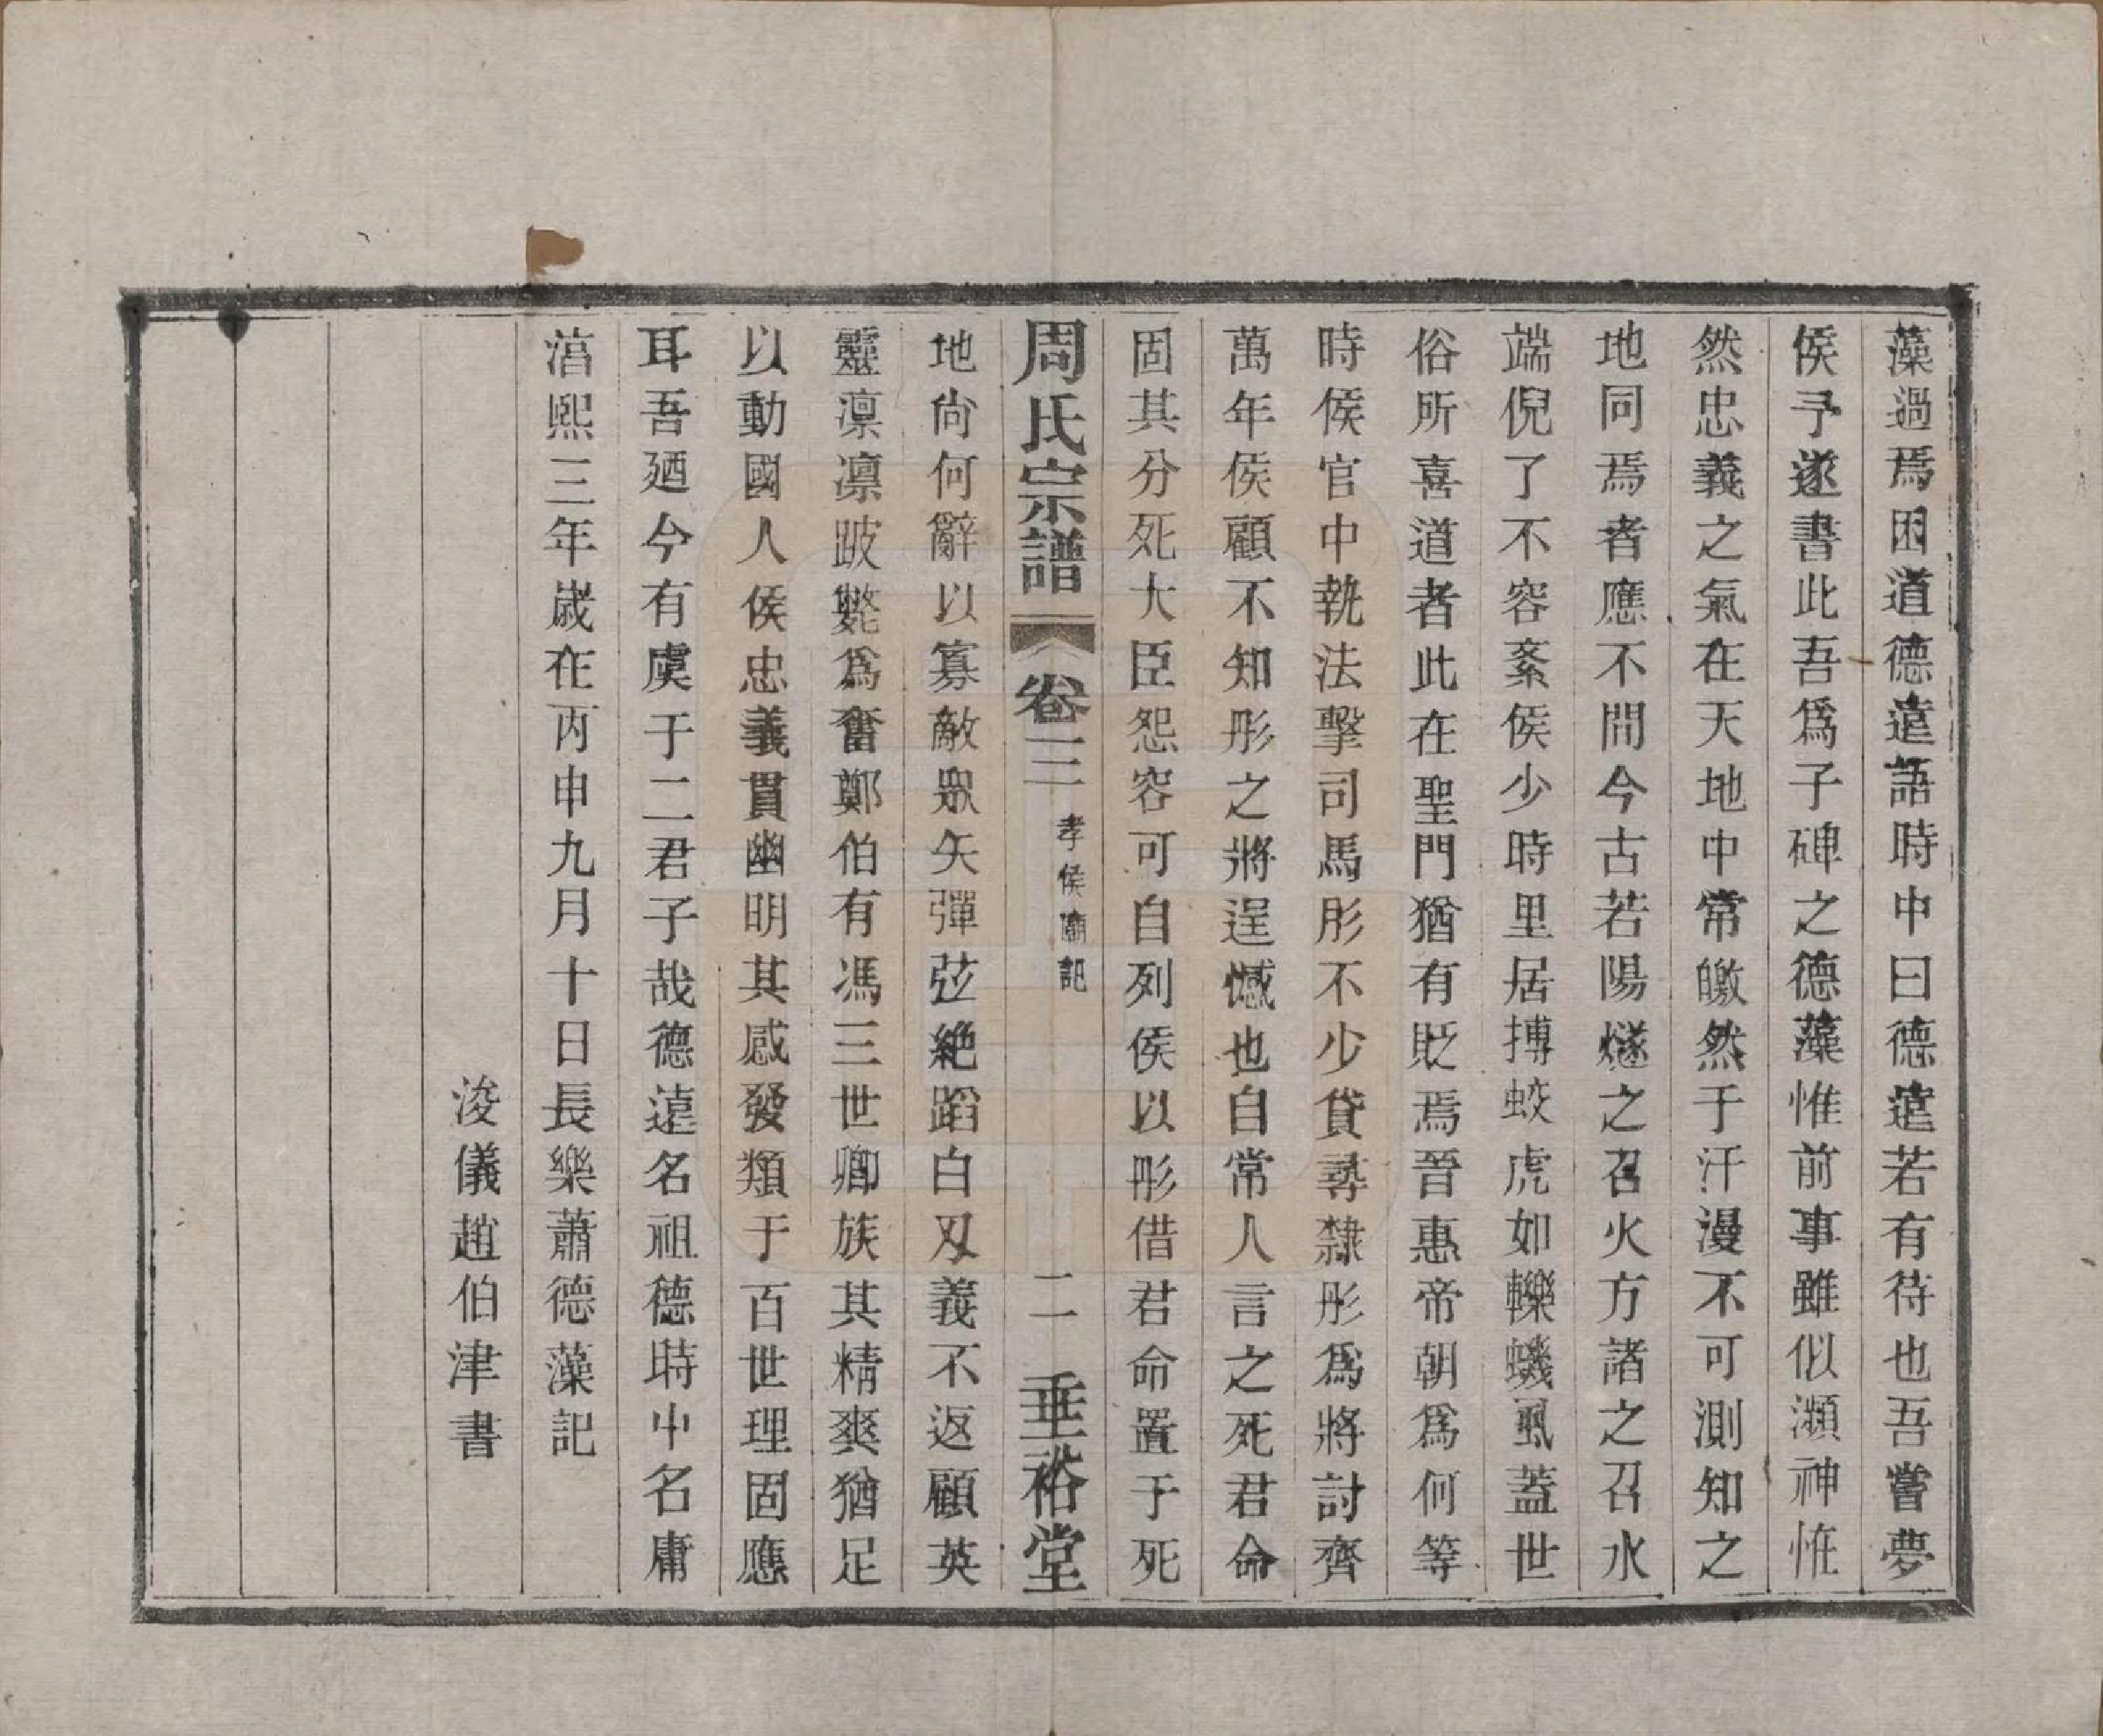 藻過焉因道德遠語時中曰德遠若有待也吾嘗夢
侯予遂書此吾爲子碑之德藻惟前事雖似瀕神恠
然忠義之氣在天地中常皦然于汗漫不可測知之
地同焉者應不間今古若陽燧之召火方諸之召水
端倪了不容紊侯少時里居搏蛟虎如轢蟣虱蓋世
俗所喜道者此在聖門猶有貶焉晉惠帝朝爲何等
時侯官中執法擊司馬肜不少貸尋隸肜爲將討齊
萬年侯顧不知肜之將逞憾也自常人言之死君命
固其分死大臣怨容可自列侯以肜借君命置于死
周氏宗譜 卷三 孝侯廟記 二 垂裕堂
地尙何辭以寡敵衆矢彈弦絶蹈白刄義不返顧英
靈凜凜跛躄爲奮鄭伯有馮三世卿族其精爽猶足
以動國人侯忠義貫幽明其感發類于百世理固應
耳吾廼今有虞于二君子哉德遠名祖德時中名庸
湻熙三年歲在丙申九月十日長樂蕭德藻記
浚儀趙伯津書